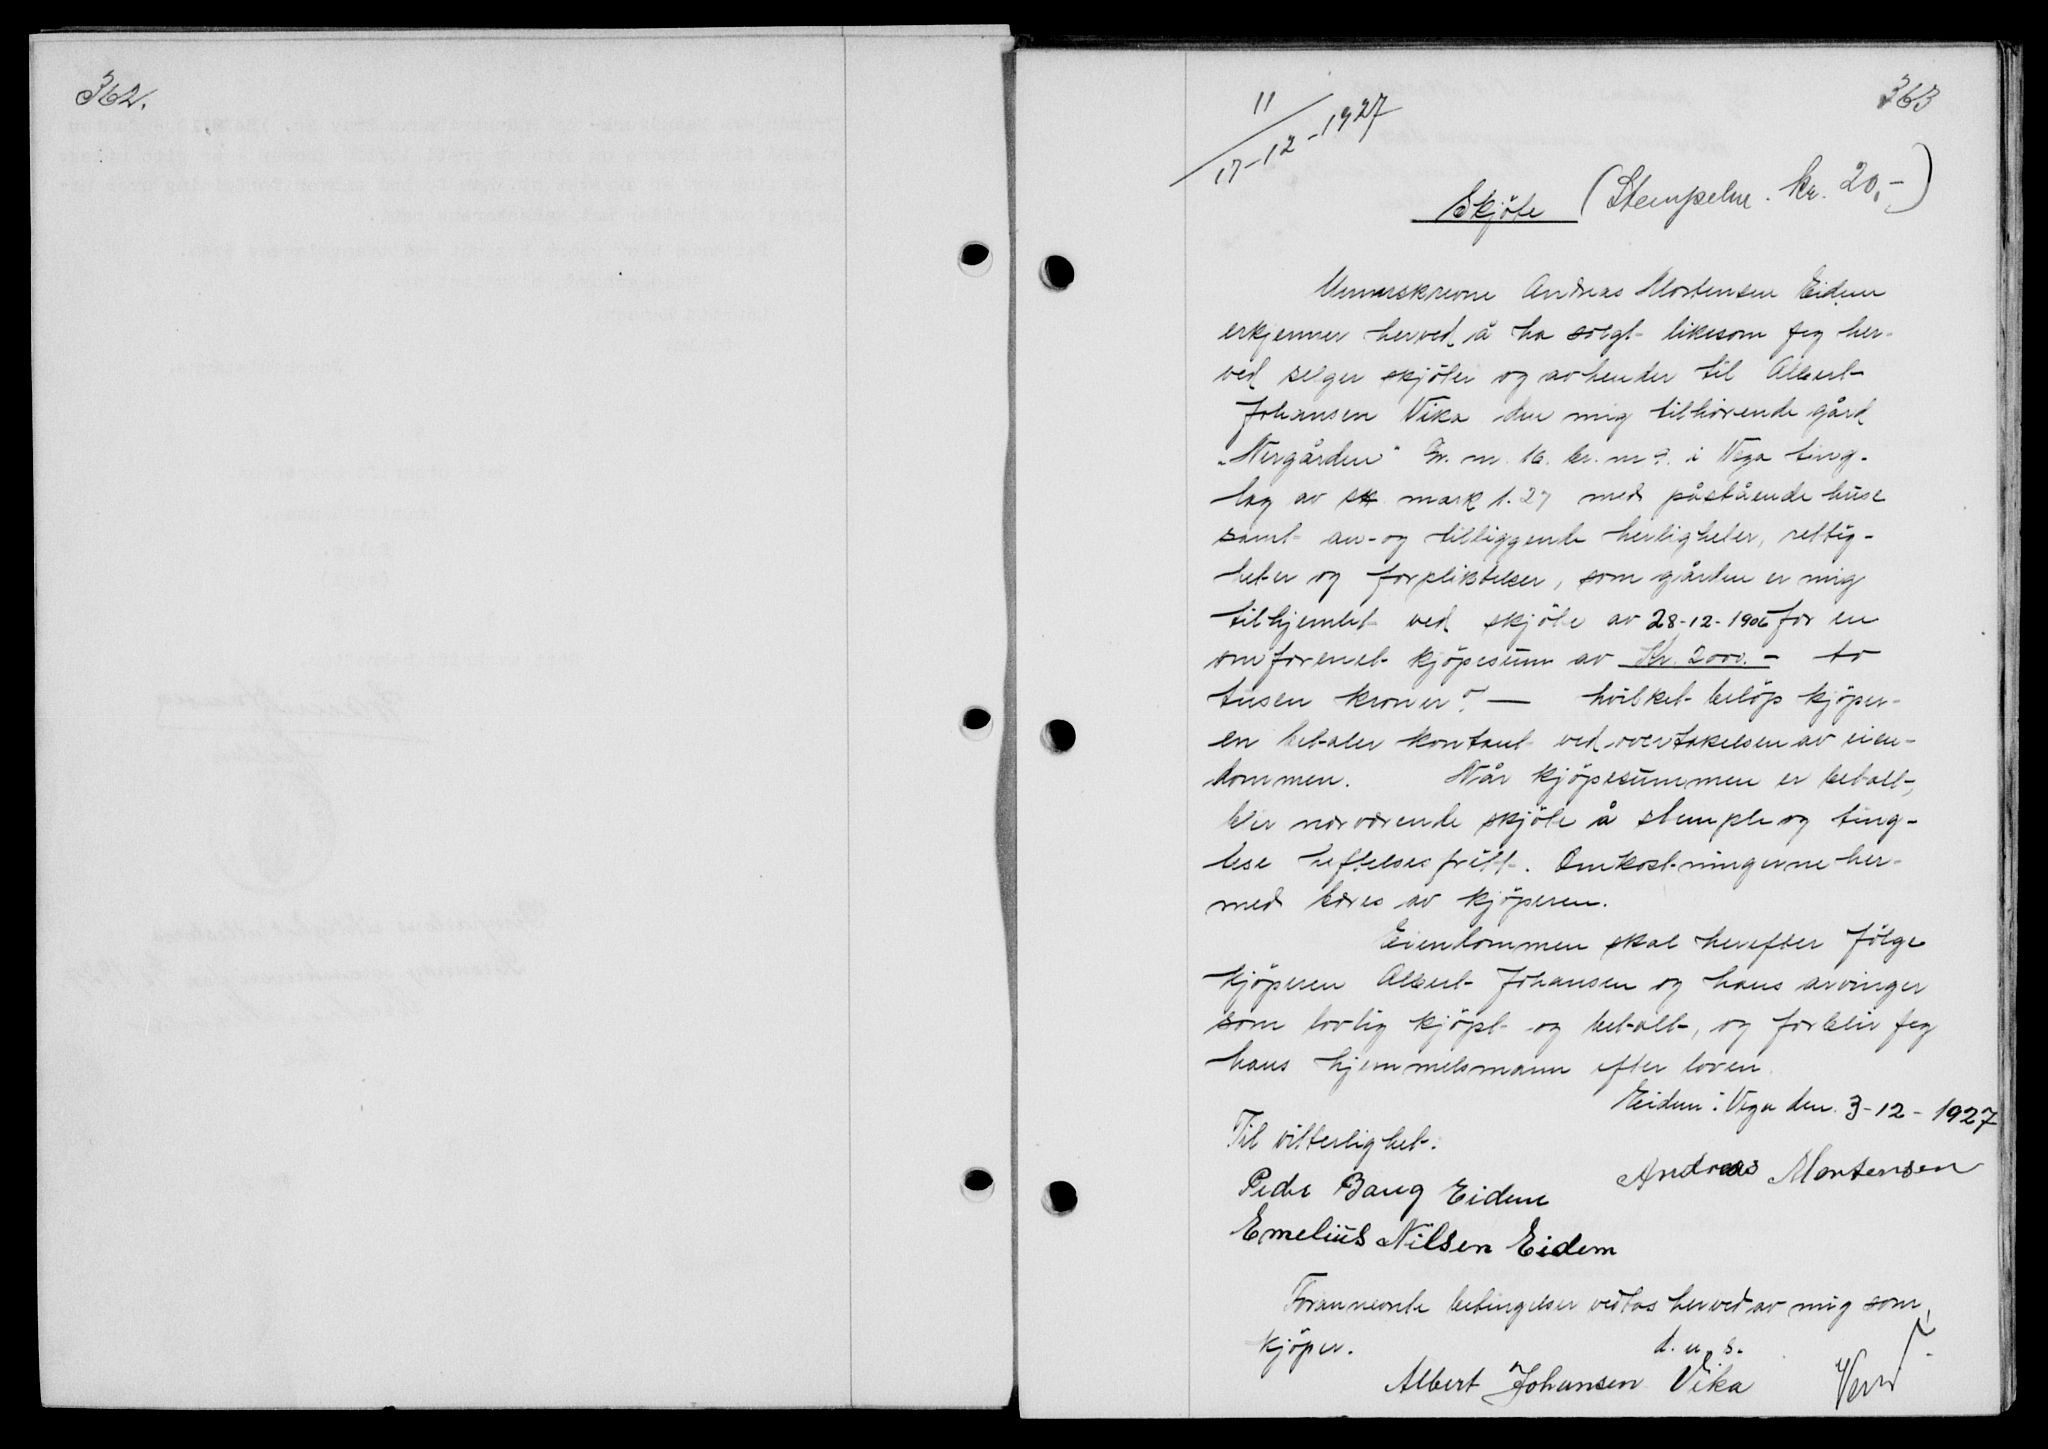 362.
363
11
17-12-1927
Skjöte (Stempelm. kr. 20,-)
Underskrevne Andreas Mortensen Eidem
erkjenner herved å ha solgt likesom jeg her-
ved selger skjöter og avhender til Albert
Johansen Vika den mig tilhörende gård
"Nergården" Gr. nr. 16. br. nr 2. i Vega ting-
lag av sk mark 1.27 med påstående huse
samt an- og tilliggende herligheter, rettig-
heter og forpliktelser, som gården er mig
tilhjemlet ved skjöte av 28-12-1906 for en
omforenet kjöpesum av Kr. 2000.- to
tusen kroner - hvilket belöp kjöper-
en betaler kontant ved overtakelsen av eien-
dommen. Når kjöpesummen er betalt,
blir nærværende skjöte å stemple og ting-
lese heftelsesfritt. Omkostningerne her-
med bæres av kjöperen.
Eiendommen skal herefter fölge
kjöperen Albert Johansen og hans arvinger
som lovlig kjöpt og betalt, og forblir jeg
hans hjemmelsmann efter loven.
Eidem i Vega den 3-12-1927
Til vitterlighet:
Andreas Mortensen
Peder Bang Eidem
Emelius Nilsen Eidem
Forannevnte betingelser vedtas herved av mig som
kjöper. d. u. s.
Albert Johansen Vika
Vend